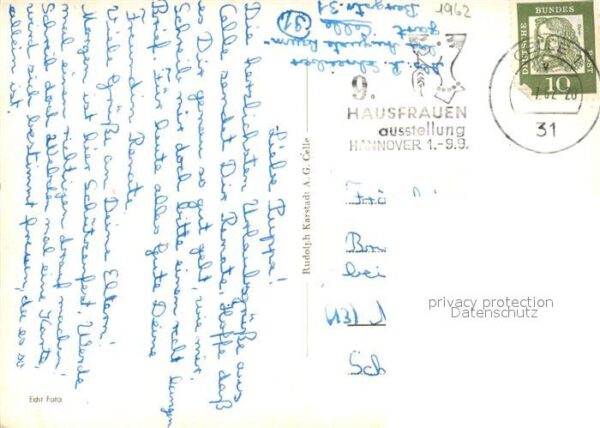 Liebe Puppe!
Die herzlichsten Urlaubsgrüße aus
Celle sendet Dir Renate. Hoffe daß
es Dir genau so gut geht, wie mir.
Schreib mir doch bitte einen recht langen
Brief. Für heute alles Gute Deine
Freundin Renate.
Viele Grüße an Deine Eltern!
Morgen ist hier Schützenfest. Werde
mal einen richtigen drauf machen.
Schreib doch mal eine Karte,
wird sich bestimmt freuen, da es so
allein ist.
Edit Foto
Rudolph Karstadt A. G. Celle
1962
Bergstr 31
Celle
(31)
DEUTSCHE BUNDESPOST
10
CELLE
31
9
HAUSFRAUEN
ausstellung
HANNOVER 1.-9.9.
bei
privacy protection
Datenschutz